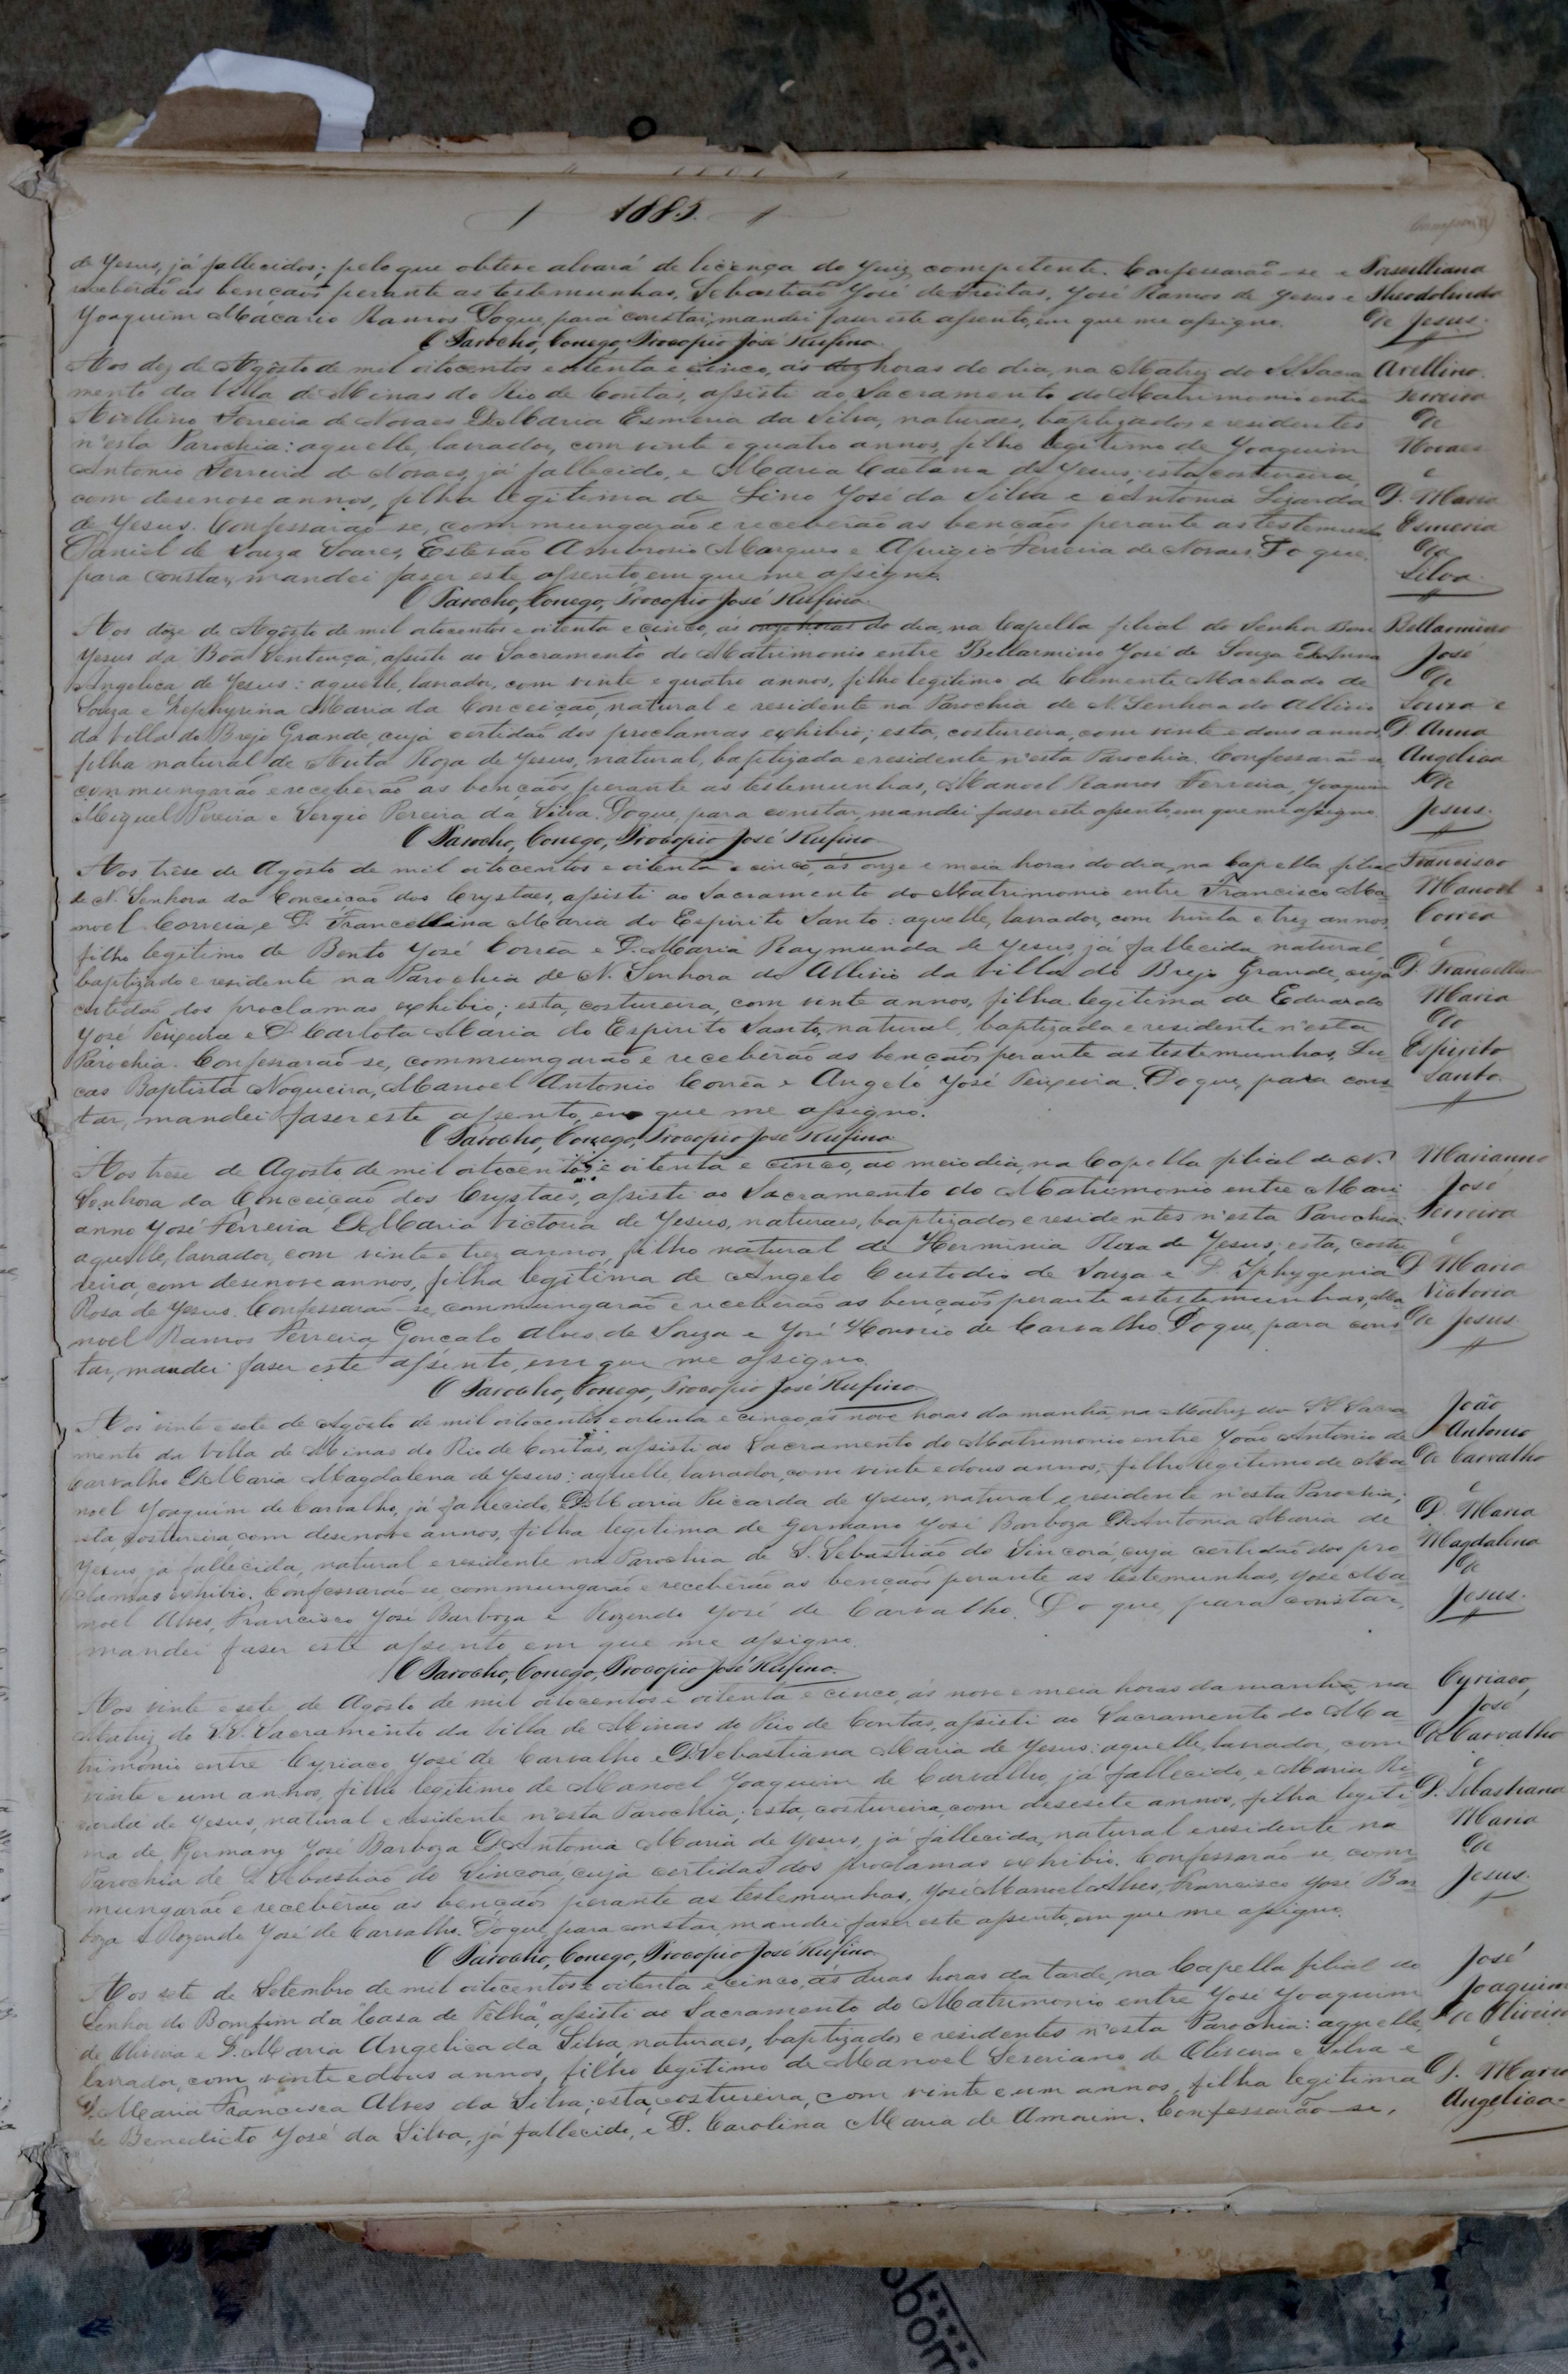 1885.
de Jesus, já fallecidos; pelo que obteve alvará de licença do Juiz competente. Confessarão-se e
receberão as bençaõs perante as testemunhas, Sebastião José de Freitas, José Ramos de Jesus e
Joaquim Macario Ramos. Do que, para constar, mandei faser este assento, em que me assigno.
Theodolindo
de Jesus.
O Parocho, Conego, Procopio José Rufino.
Aos dez de Agôsto de mil oitocentos e oitenta e cinco, ás dez horas do dia, na Matriz do S.S. Sacra
mento da Villa de Minas do Rio de Contas, assisti ao Sacramento do Matrimonio entre
Avellino Ferreira de Novaes e D. Maria Esmeria da Silva, naturaes, baptizados e residentes
n'esta Parochia: aquelle, lavrador, com vinte e quatro annos, filho legitimo de Joaquim
Antonio Ferreira de Novaes, já fallecido, e Maria Caetana de Jesus; esta, costureira,
com desenove annos, filha legitima de Lino José da Silva e Antonia Lizarda
de Jesus. Confessarão-se, commungarão e receberão as bençaõs perante as testemunhas
Daniel de Souza Soares, Estevão Ambrosio Marques e Aprigio Ferreira de Novaes. Do que,
para constar, mandei faser este assento, em que me assigno.
Avellino
Ferreira
de
Novaes
e
D. Maria
Esmeria
da
Silva.
O Parocho, Conego, Procopio José Rufino.
Aos doze de Agôsto de mil oitocentos e oitenta e cinco, ás onze horas do dia, na Capella filial do Senhor Bom
Jesus da "Boa Sentença", assisti ao Sacramento do Matrimonio entre Bellarmino José de Souza e D. Anna
Angelica de Jesus: aquelle, lavrador, com vinte e quatro annos, filho legitimo de Clemente Machado de
Souza e Zephyrina Maria da Conceição, natural e residente na Parochia de N. Senhora do Allivio
da Villa do Brejo Grande, cuja certidão dos proclamas exhibio; esta, costureira, com vinte e dous annos,
filha natural de Roza de Jesus, natural, baptizada e residente n'esta Parochia. Confessarão-se,
commungarão e receberão as bençaõs, perante as testemunhas, Manoel Ramos Ferreira, Joaquim
Miguel Pereira e Sergio Pereira da Silva. Do que, para constar, mandei faser este assento, em que me assigno.
Bellarmino
José
de
Souza e
D. Anna
Angelica
de
Jesus.
O Parocho, Conego, Procopio José Rufino
Aos trêse de Agosto de mil oitocentos e oitenta e cinco, ás onze e meia horas do dia, na Capella filial
de N. Senhora da Conceição dos Crystaes, assisti ao Sacramento do Matrimonio entre Francisco Ma-
noel Correia, e D. Francellina Maria do Espirito Santo: aquelle, lavrador, com trinta e trez annos,
filho legitimo de Bento José Corrêa e D. Maria Raymunda de Jesus, já fallecida, natural,
baptizado e residente na Parochia de N. Senhora do Allivio da Villa do Brejo Grande, cuja
certidão dos proclamas exhibio; esta, costureira, com vinte annos, filha legitima de Eduardo
José Teixeira e D. Carlota Maria do Espirito Santo, natural, baptizada e residente n'esta
Parochia. Confessarão-se, commungarão e receberão as bençaõs perante as testemunhas, Lu-
cas Baptista Nogueira, Manoel Antonio Corrêa e Angelo José Teixeira. Do que, para cons-
tar, mandei faser este assento, em que me assigno.
Francisco
Manoel
Correa
e
D. Francellina
Maria
do
Espirito
Santo.
O Parocho, Conego, Procopio José Rufino
Aos trese de Agosto de mil oitocentos e oitenta e cinco, ao meio dia, na Capella filial de N.
Senhora da Conceição dos Crystaes, assisti ao Sacramento do Matrimonio entre Mari-
anno José Ferreira e D. Maria Victoria de Jesus, naturaes, baptizados e residentes n'esta Parochia:
aquelle, lavrador, com vinte e trez annos, filho natural de Herminia Roza de Jesus; esta, costu
reira, com desenove annos, filha legitima de Angelo Custodio de Souza e D. Iphygenia
Rosa de Jesus. Confessarão-se, commungarão e receberão as bençaõs perante as testemunhas, Ma
noel Ramos Ferreira, Gonçalo Alves de Souza e José Honorio de Carvalho. Do que, para cons-
tar, mandei faser este assento, em que me assigno.
Marianno
José
Ferreira
e
D. Maria
Victoria
de Jesus.
O Parocho, Conego, Procopio José Rufino
Aos vinte e sete de Agôsto de mil oitocentos e oitenta e cinco, ás nove horas da manhã, na Matriz do S.S. Sacra
mento da Villa de Minas do Rio de Contas, assisti ao Sacramento do Matrimonio entre João Antonio de
Carvalho e D. Maria Magdalena de Jesus: aquelle, lavrador, com vinte e dous annos, filho legitimo de Ma-
noel Joaquim de Carvalho, já fallecido, e D. Maria Ricarda de Jesus, natural e residente n'esta Parochia;
esta, costureira, com desenove annos, filha legitima de Germano José Barboza e D. Antonia Maria de
Jesus, já fallecida, natural e residente na Parochia de S. Sebastião do Sincorá, cuja certidão dos pro-
clamas exhibio. Confessarão-se, commungarão e receberão as bençaõs perante as testemunhas, José Ma-
noel Alves, Francisco José Barboza e Rozendo José de Carvalho. Do que, para constar,
mandei faser este assento em que me assigno.
João
Antonio
de Carvalho
e
D. Maria
Magdalena
de
Jesus.
O Parocho, Conego, Procopio José Rufino.
Aos vinte e sete de Agôsto de mil oitocentos e oitenta e cinco, ás nove e meia horas da manhã, na
Matriz do S.S. Sacramento da Villa de Minas do Rio de Contas, assisti ao Sacramento do Ma-
trimonio entre Cyriaco José de Carvalho e D. Sebastiana Maria de Jesus: aquelle, lavrador, com
vinte e um annos, filho legitimo de Manoel Joaquim de Carvalho, já fallecido, e Maria Ri-
carda de Jesus, natural e residente n'esta Parochia; esta, costureira, com desesete annos, filha legiti-
ma de Germano José Barboza e D. Antonia Maria de Jesus, já fallecida, natural e residente na
Parochia de S. Sebastião do Sincorá, cuja certidão dos proclamas exhibio. Confessarão-se, com-
mungarão e receberão as bençaõs perante as testemunhas, José Manoel Alves, Francisco José Bar-
boza e Rozendo José de Carvalho. Do que, para constar, mandei faser este assento, em que me assigno.
Cyriaco
José
de Carvalho
e
D. Sebastiana
Maria
de
Jesus.
O Parocho, Conego, Procopio José Rufino
Aos sete de Setembro de mil oitocentos e oitenta e cinco, ás duas horas da tarde, na Capella filial do
Senhor do Bomfim da "Casa de Telha", assisti ao Sacramento do Matrimonio entre José Joaquim
de Oliveira e D. Maria Angelica da Silva, naturaes, baptizados e residentes n'esta Parochia: aquelle,
lavrador, com vinte e dous annos, filho legitimo de Manoel Severiano de Oliveira e Silva e
D. Maria Francisca Alves da Silva; esta, costureira, com vinte e um annos, filha legitima
de Benedicto José da Silva, já fallecido, e D. Carolina Maria de Amorim. Confessarão-se,
José
Joaquim
de Oliveira
e
D. Maria
Angelica